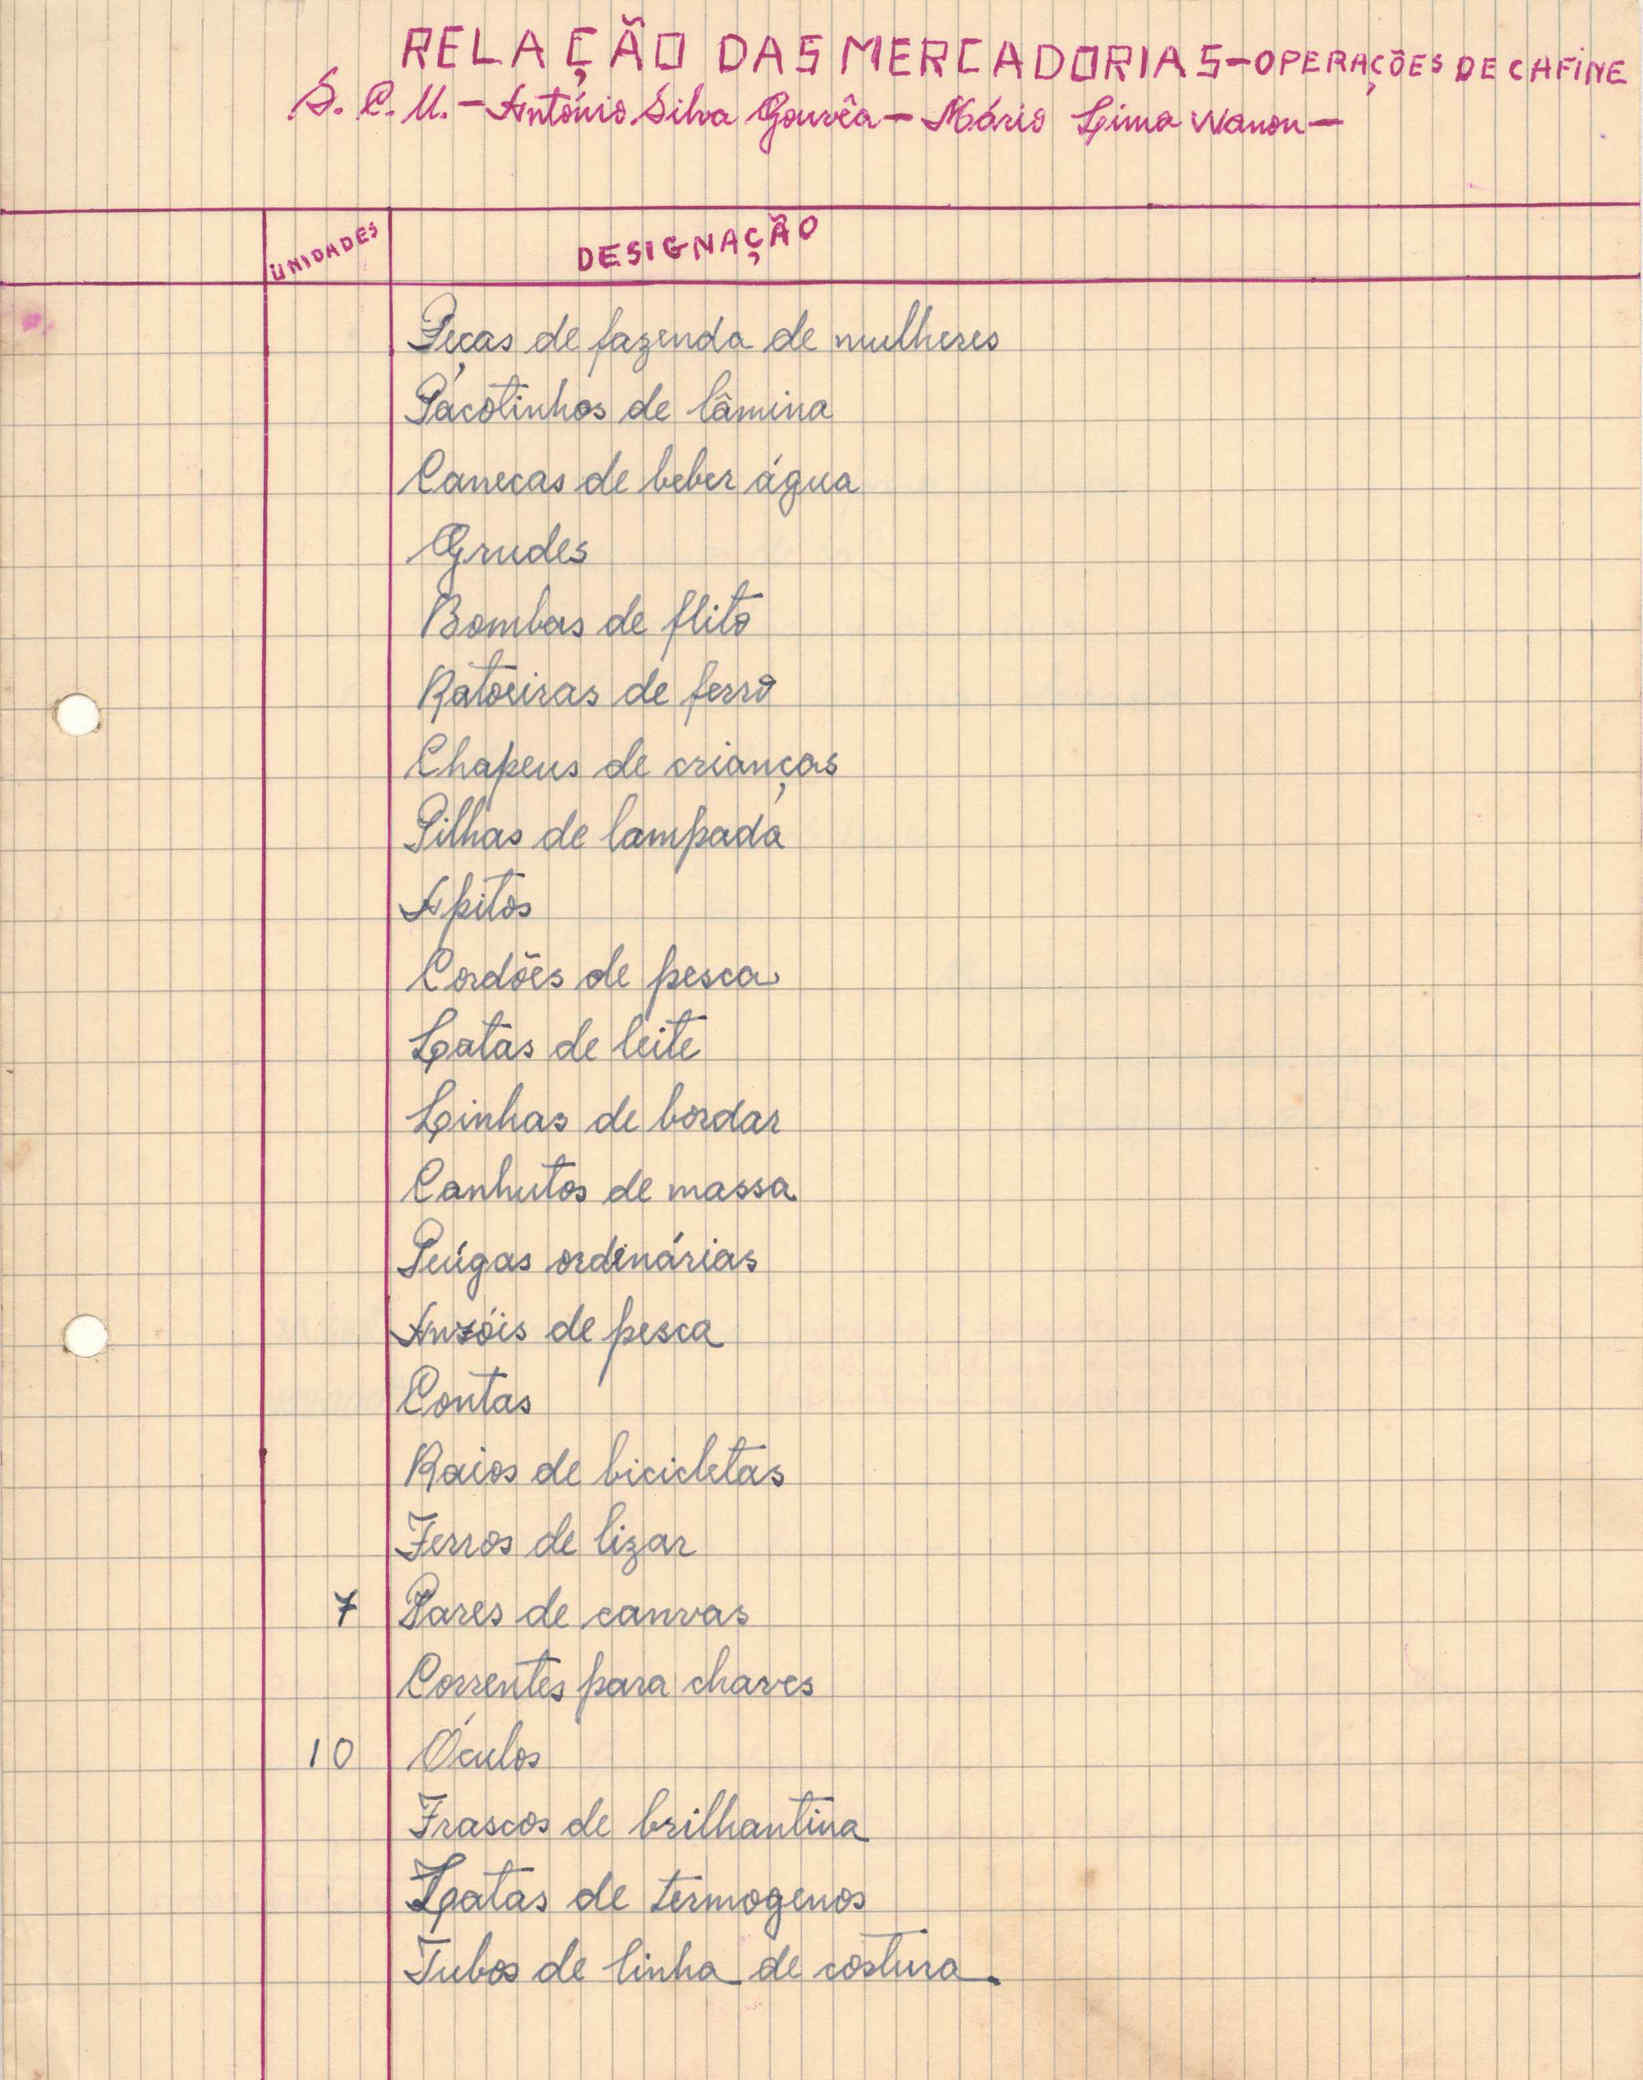 RELAÇÃO DAS MERCADORIAS-OPERAÇÕES DE CAFINE
S. C. U. - António Silva Gouvêa - Mário Lima Wanon -
UNIDADES DESIGNAÇÃO
Peças de fazenda de mulheres
Pacotinhos de lâmina
Canecas de beber água
Grudes
Bombas de flito
Ratoeiras de ferro
Chapeus de crianças
Pilhas de lampada
Apitos
Cordões de pesca
Latas de leite
Linhas de bordar
Canhutos de massa
Peúgas ordinárias
Anzóis de pesca
Contas
Raios de bicicletas
Ferros de lizar
7 Pares de canvas
Correntes para chaves
10 Óculos
Frascos de brilhantina
Latas de termogenos
Tubos de linha de costura.